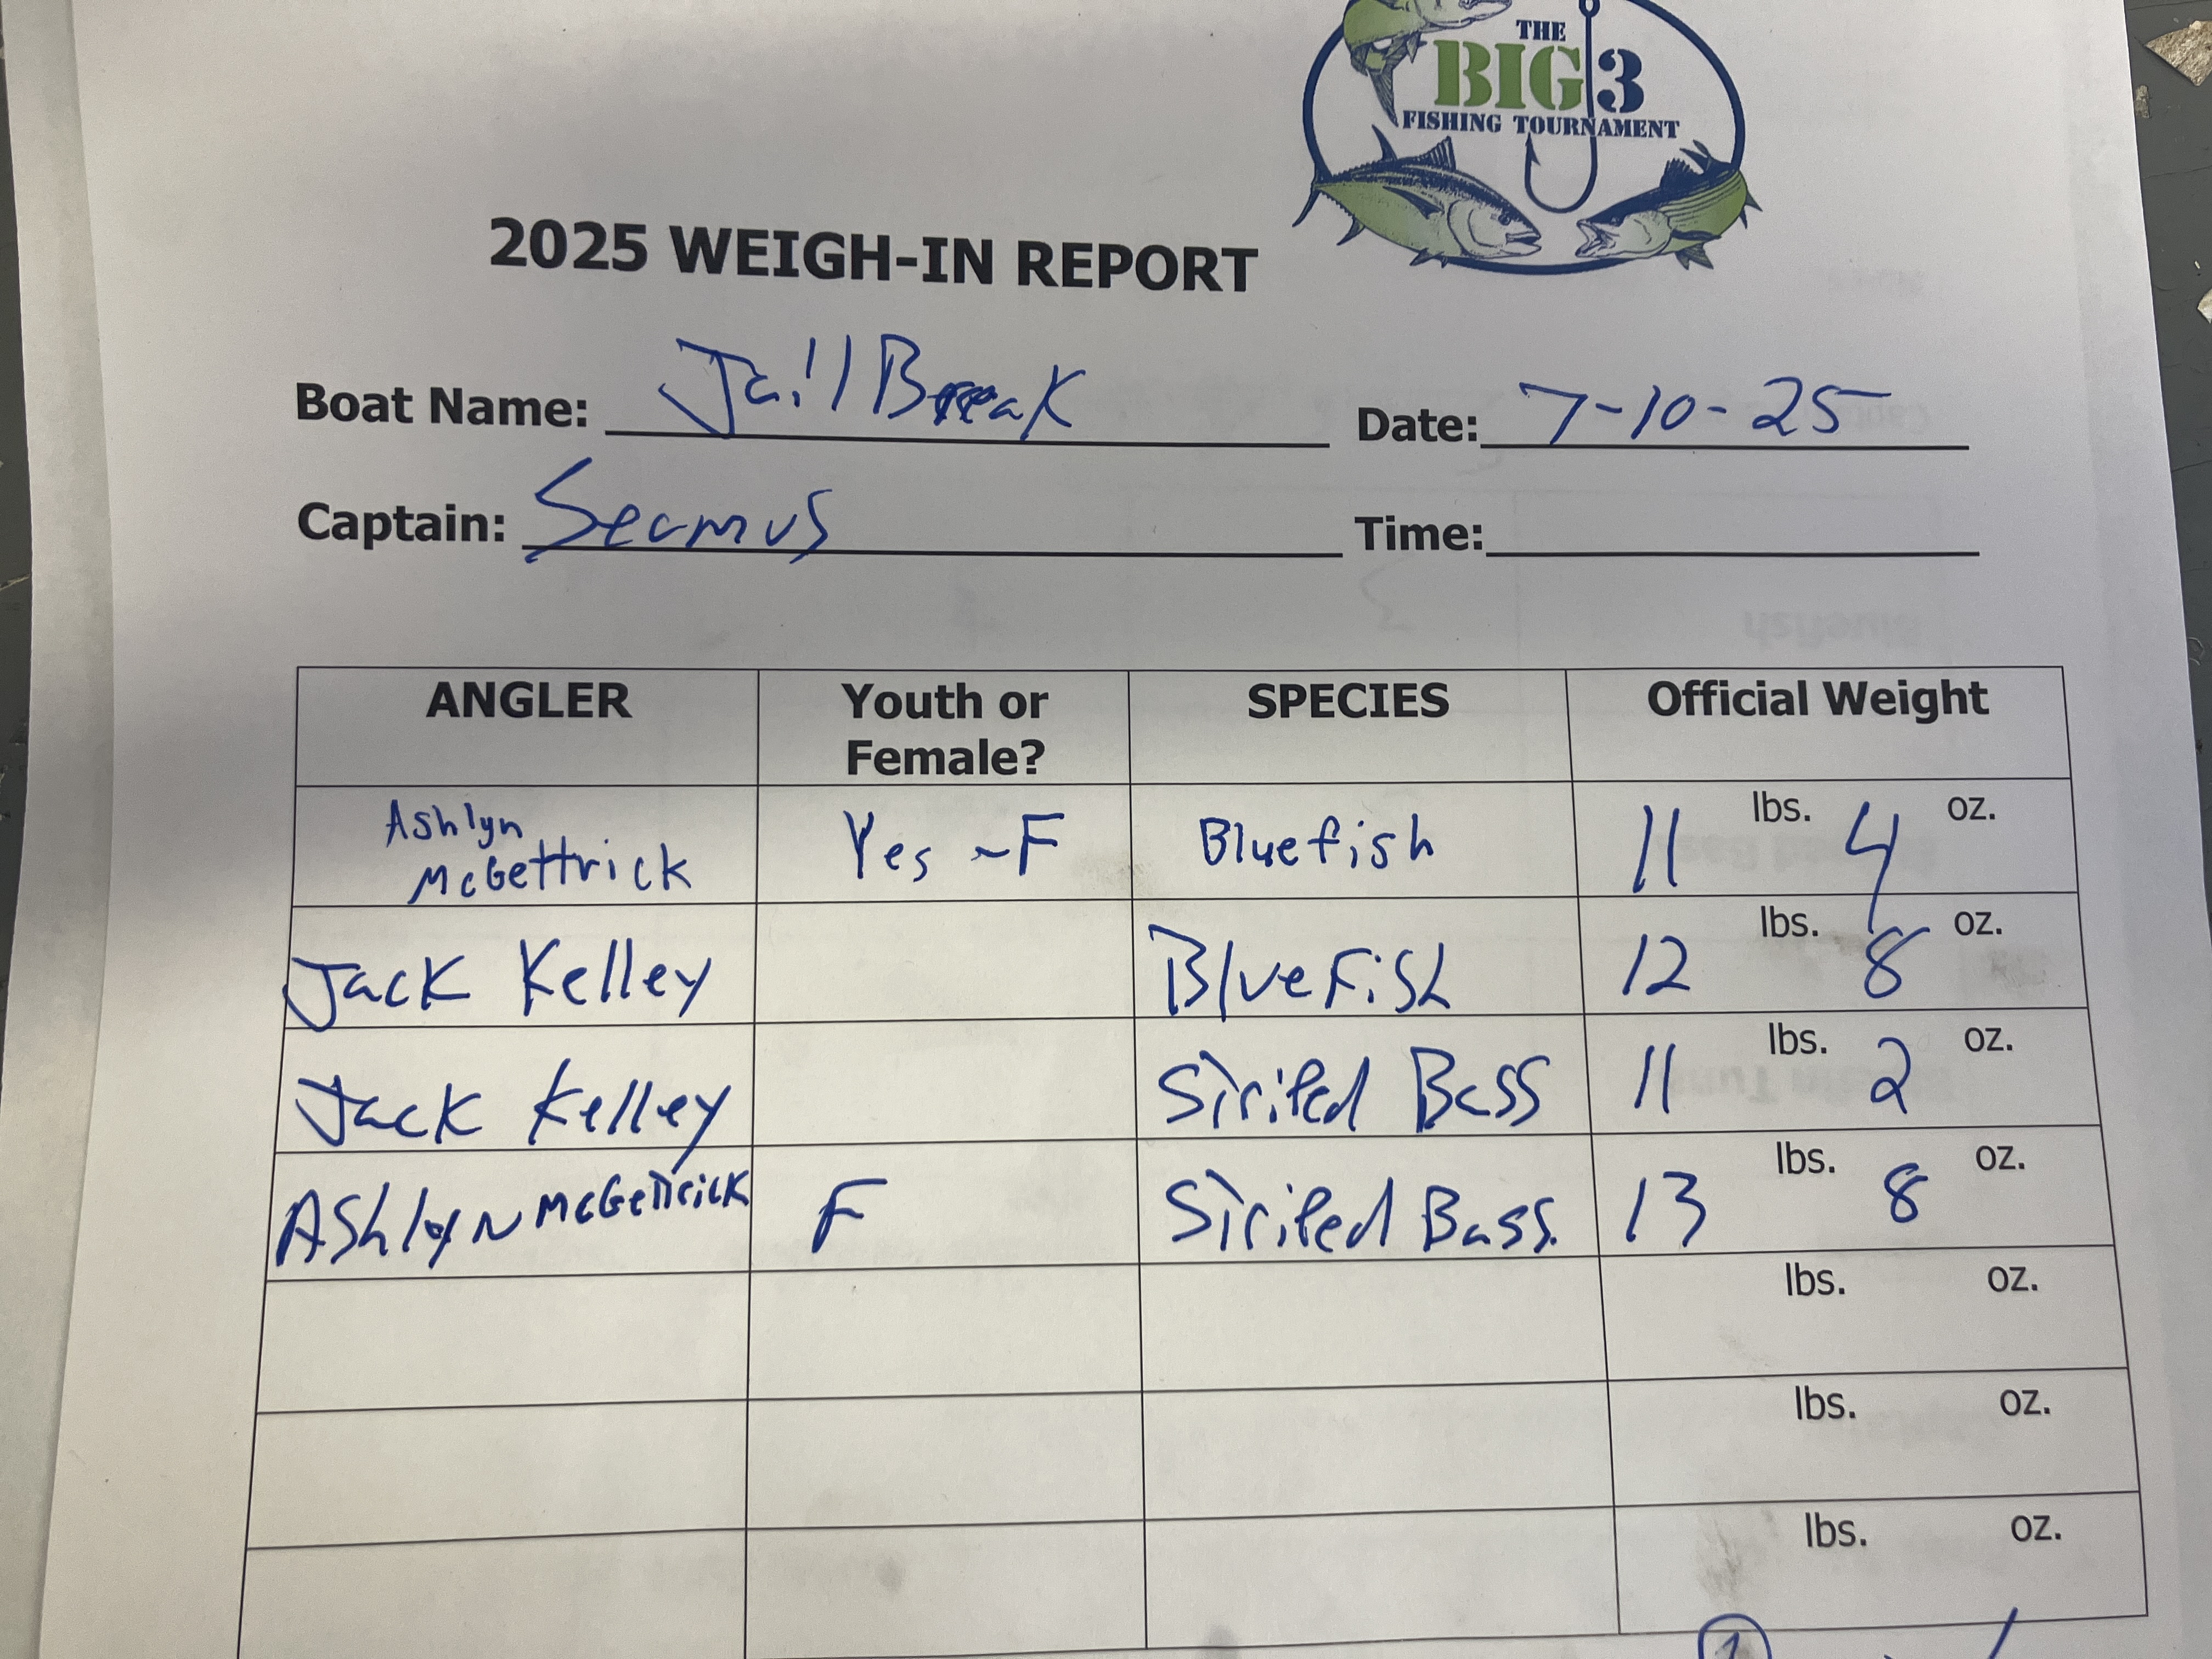 THE
BIG 3
FISHING TOURNAMENT
2025 WEIGH-IN REPORT
Boat Name: Jail Break Date: 7-10-25
Captain: Seamus Time:
ANGLER Youth or Female? SPECIES Official Weight
Ashlyn McGettrick Yes ~F Bluefish 11 lbs. 4 oz.
Jack Kelley BlueFish 12 lbs. 8 oz.
Jack Kelley Striped Bass 11 lbs. 2 oz.
Ashlyn McGettrick F Striped Bass. 13 lbs. 8 oz.
lbs. oz.
lbs. oz.
lbs. oz.
1